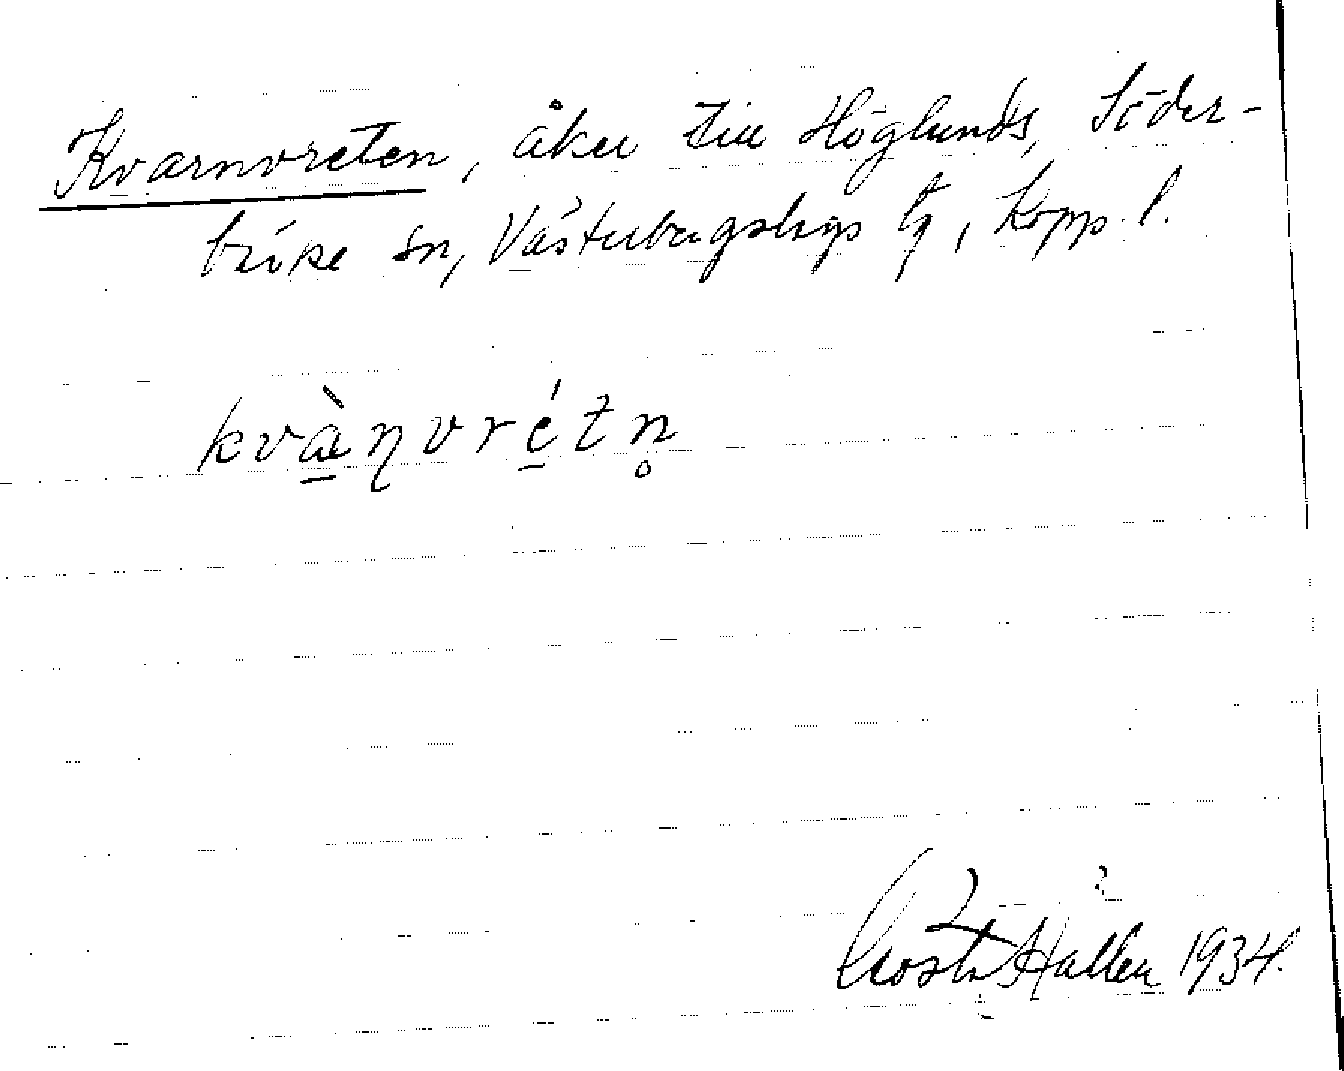 Kvarnvreten, åker till Höglunds, Söder-
bärke sn, Västerbergslags tg, Kopp. l.
kvà̱ɳvré̱tn̥
Hallén 1934.